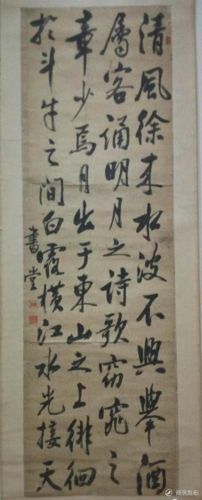 清風徐来水波不興舉酒
屬客誦明月之詩歌窈窕之
章少焉月出于東山之上徘徊
於斗牛之間白露橫江水光接天
書堂